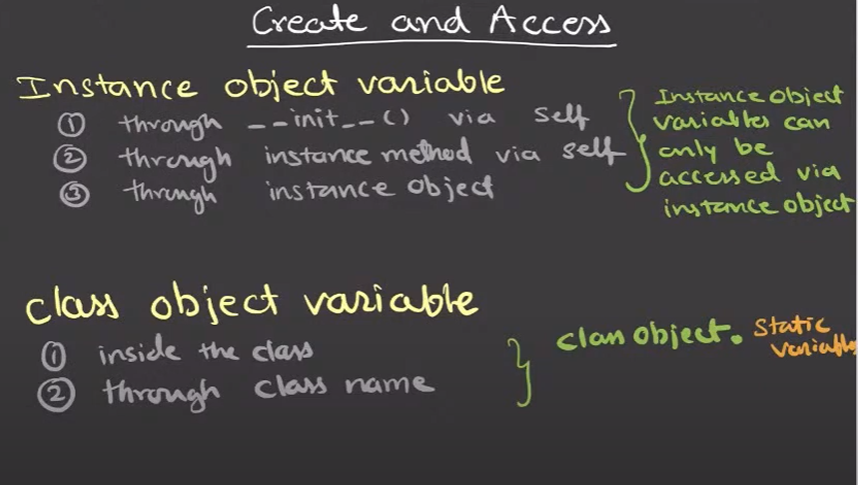 Create and Access
Instance object variable
① through __init__() via self
② through instance method via self
③ through instance object
Instance Object
variables can
only be
accessed via
instance object
class object variable
① inside the class
② through class name
class object. static
variables